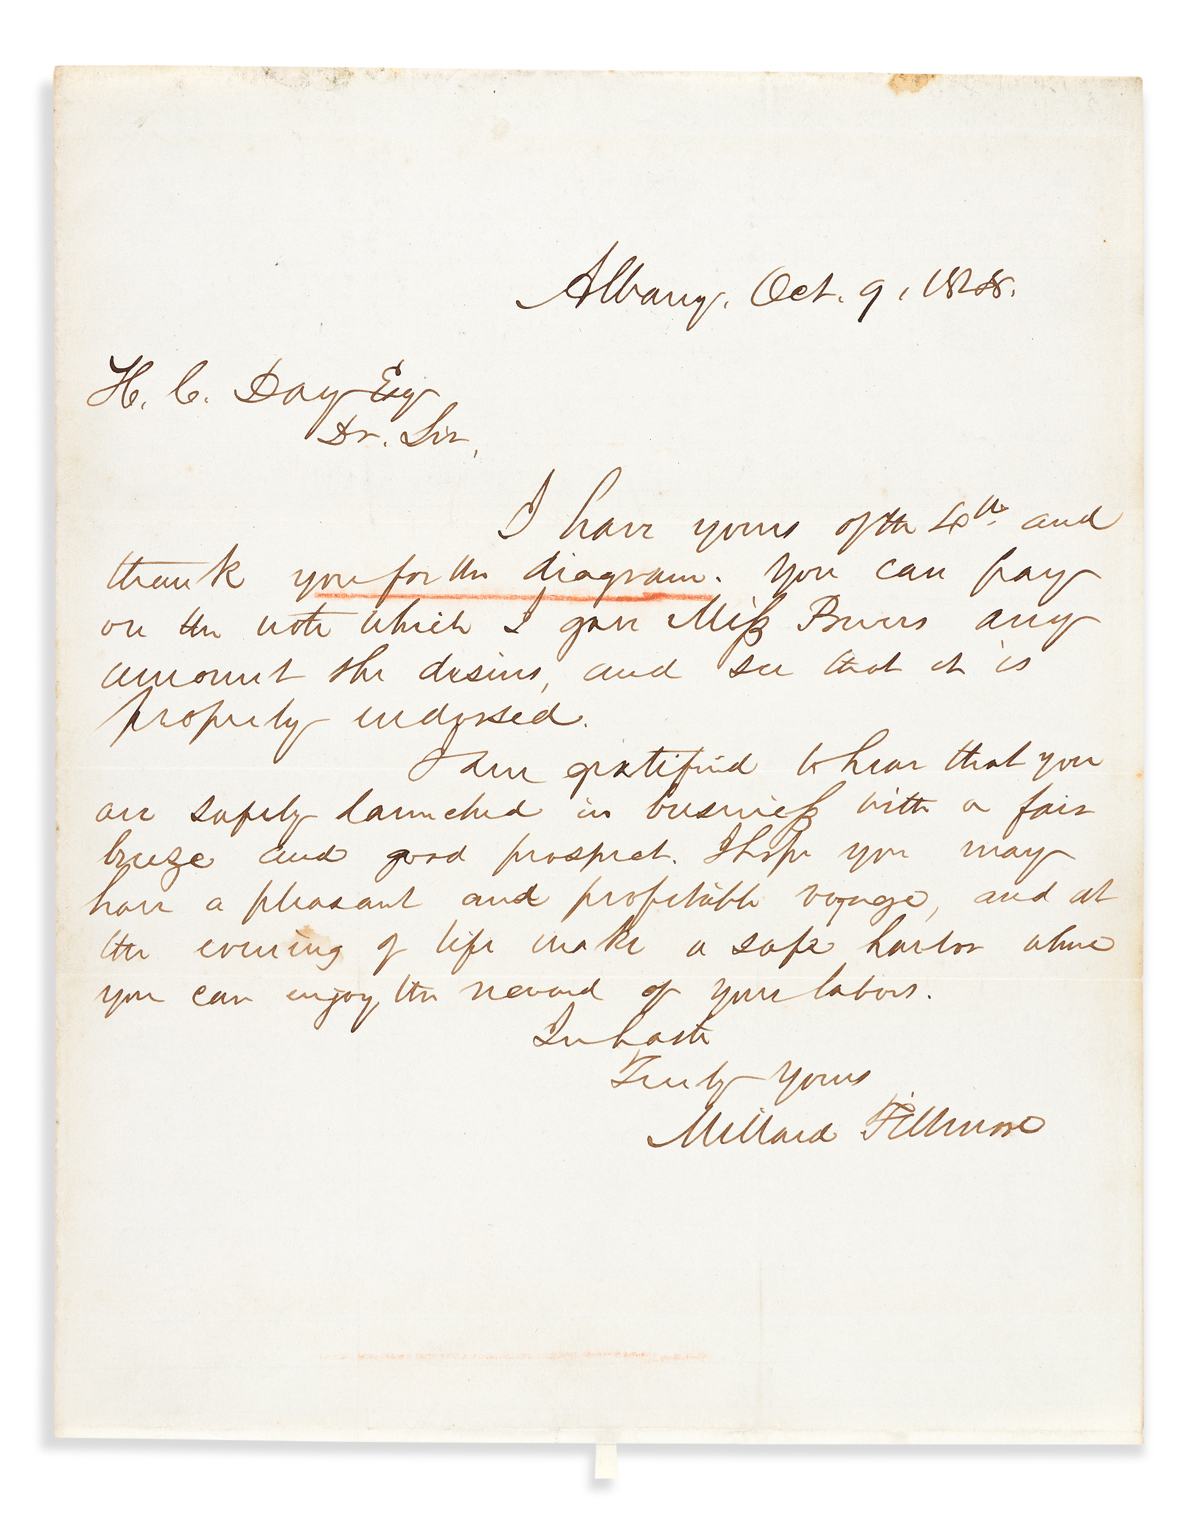 Albany, Oct. 9, 1848.
H. C. Day Esq
Dr. Sir,
I have yours of the 4th and
thank you for the diagram. You can pay
on the note which I gave Miss Powers any
amount she desires, and see that it is
properly endorsed.
I am gratified to hear that you
are safely launched in business with a fair
breeze and good prospect. I hope you may
have a pleasant and profitable voyage, and at
the evening of life make a safe harbor where
you can enjoy the reward of your labors.
In haste
Truly yours
Millard Fillmore